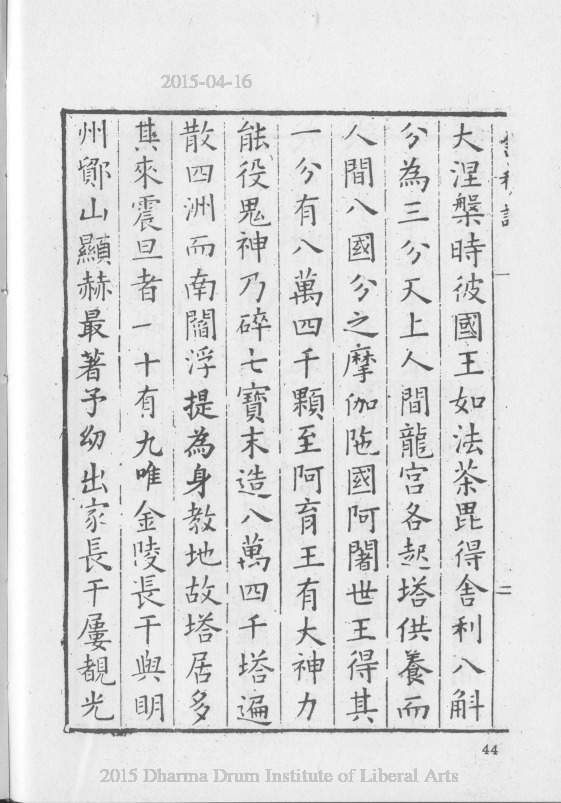 2015-04-16
大涅槃時彼國王如法荼毘得舍利八斛
分為三分天上人間龍宮各起塔供養而
人間八國分之摩伽陁國阿闍世王得其
一分有八萬四千顆至阿育王有大神力
能役鬼神乃碎七寶末造八萬四千塔遍
散四洲而南閻浮提為身教地故塔居多
其來震旦者一十有九唯金陵長干與明
州鄮山顯赫最著予幼出家長干屢覩光
44
2015 Dharma Drum Institute of Liberal Arts